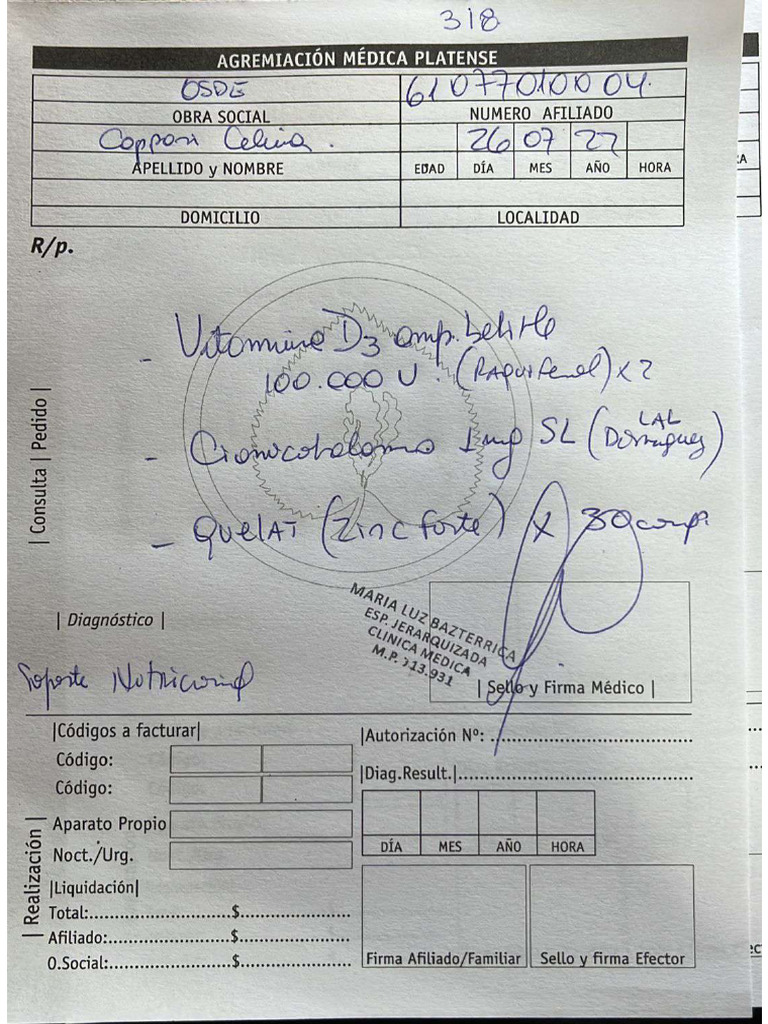 318
AGREMIACIÓN MÉDICA PLATENSE
OSDE 61077010004.
OBRA SOCIAL NUMERO AFILIADO
Coppari Celina. 26 07 22
APELLIDO y NOMBRE EDAD DÍA MES AÑO HORA
DOMICILIO LOCALIDAD
R/p.
- Vitamina D3 amp. bebible
100.000 U. (RAQUIferol) x 2
LAL
- Cianocobalamina 1mg SL (Dominguez)
- QUELAT (Zinc forte) x 30 comp.
| Consulta | Pedido |
| Diagnóstico |
MARIA LUZ BAZTERRICA
ESP. JERARQUIZADA
CLINICA MEDICA
M.P. 113.931
Soporte Nutricional
| Sello y Firma Médico |
|Códigos a facturar| |Autorización Nº:
Código:
|Diag.Result.|
Código:
Aparato Propio
DÍA MES AÑO HORA
Noct./Urg.
| Realización |
|Liquidación|
Total: $
Afiliado: $
O.Social: $
Firma Afiliado/Familiar Sello y firma Efector